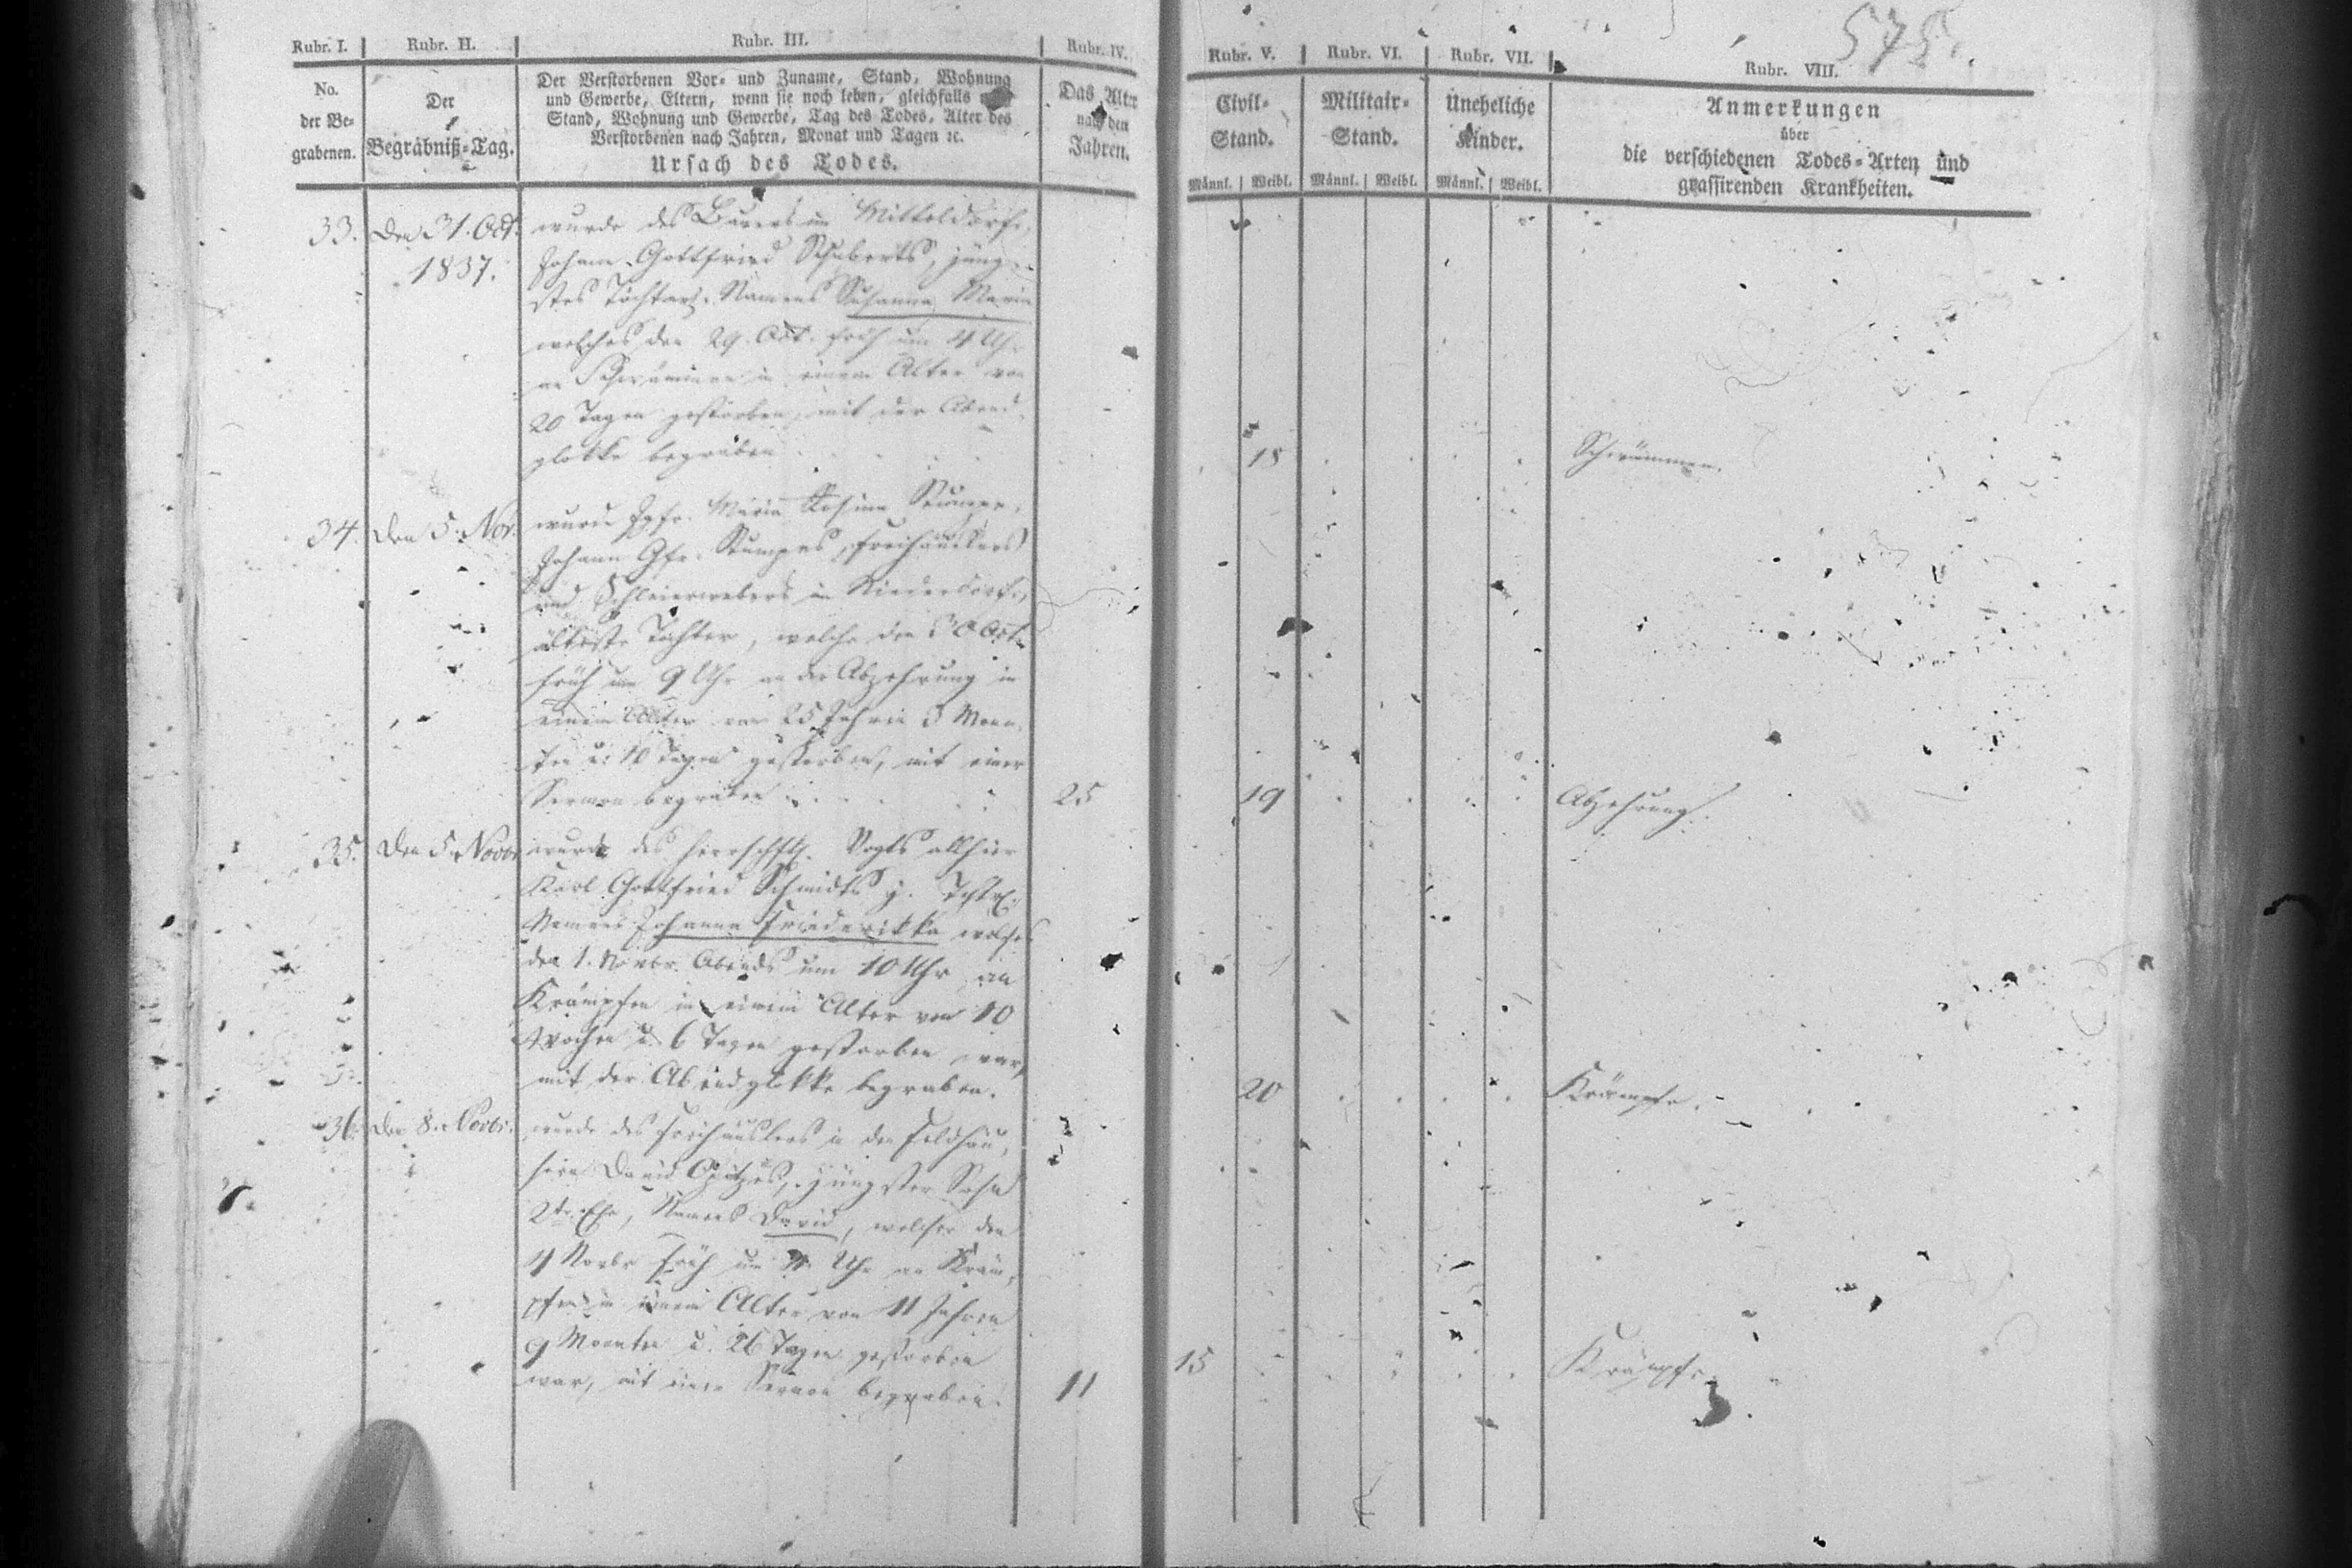 575.
Rubr. I. Rubr. II. Rubr. III. Rubr. IV. Rubr. V. Rubr. VI. Rubr. VII. Rubr. VIII.
No.
der Be-
grabenen.
Der
Begräbniß-Tag.
Der Verstorbenen Vor- und Zuname, Stand, Wohnung
und Gewerbe, Eltern, wenn sie noch leben, gleichfalls nach
Stand, Wohnung und Gewerbe, Tag des Todes, Alter des
Verstorbenen nach Jahren, Monat und Tagen ꝛc.
Ursach des Todes.
Das Alter
nach den
Jahren.
Civil-
Stand.
Männl. Weibl.
Militair-
Stand.
Männl. Weibl.
Uneheliche
Kinder.
Männl. Weibl.
Anmerkungen
über
die verschiedenen Todes-Arten und
grassirenden Krankheiten.
33. den 31. Oct. wurde des Bauers im Mitteldorfe,
1837. Johann Gottfried Schuberts, jüng-
stes Töchterl. Namens Susanna Maria
welches den 29. Oct. früh um 4 Uhr
an Schwämmen in einem Alter von
20 Tagen gestorben, mit der Abend-
glokke begraben 18 Schwämmen.
34. den 5. Nov. wurde Jgfr. Maria Rosina Stumpe,
Johann Gfr. Stumpes, Freihäuslers
und Schleierwebers in Niederdorfe,
älteste Tochter, welche den 30 Oct.
früh um 9 Uhr an der Abzehrung in
einem Alter von 25 Jahren 3 Mona-
ten u. 10 Tagen gestorben, mit einer
Sermon begraben 25 19 Abzehrung.
35. den 5. Novbr wurde des herrschftl. Vogts allhier
Karl Gottfried Schmidts j. Töchtl.
Namens Johanna Friederikka welches
den 1. Novbr. Abends um 10 Uhr an
Krämpfen in einem Alter von 10
Wochen u. 6 Tagen gestorben war,
mit der Abendglokke begraben. 20 Krämpfe.
36. den 8. Novbr. wurde des Freihäuslers in den Feldhäu-
sern David Opitzes, jüngster Sohn
2tr Ehe, Namens David, welcher den
4 Novbr früh um Uhr an Kräm-
pfen in einem Alter von 11 Jahren
9 Monaten u. 26 Tagen gestorben
war, mit einer Sermon begraben. 11 15 Krämpfe